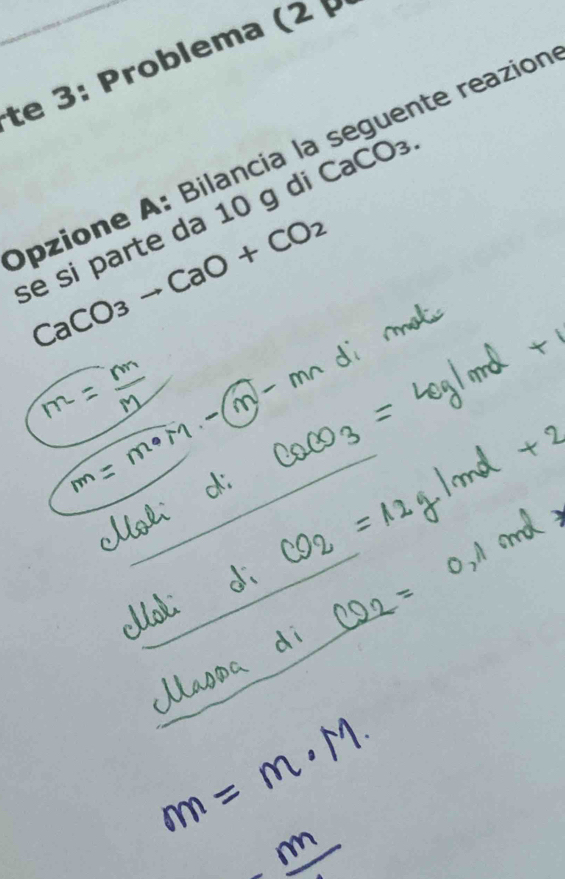 rte 3: Problema (2 p
Opzione A: Bilancia la seguente reazione
se si parte da 10 g di CaCO₃.
CaCO₃ → CaO + CO₂
n = m/M
m = n•M. - n - nn di moli
Moli di CaCO3 = 40g/mol + 1
Moli di CO2 = 12g/mol + 2
Massa di CO2 = 0,1 mol *
m = n • M.
m